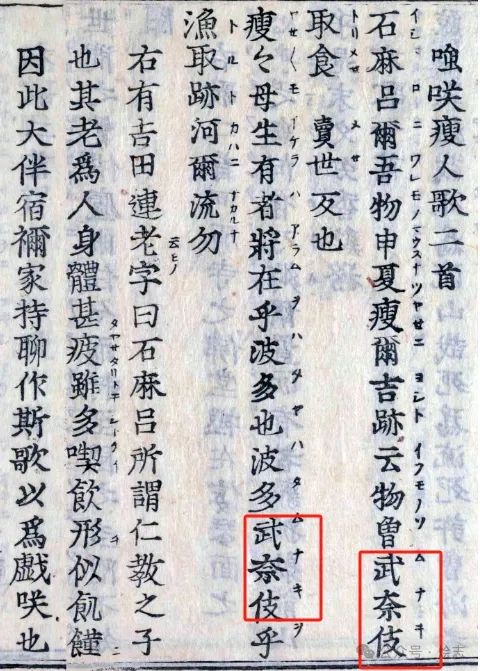 嗤咲瘦人歌二首
石麻呂爾吾物申夏瘦爾吉跡云物曽武奈伎
イシ ロニ ワレモノマウスナツヤセニ ヨシト イフモノソ ムナキ
取食 賣世反也
トリメセ メセ
瘦々母生有者將在乎波多也波多武奈伎乎
ヤセ〳〵モイケラハ アラムヲハタヤハタムナキヲ
漁取跡河爾流勿
トルト カハニ ナカルナ
右有吉田連老字曰石麻呂所謂仁敎之子
也其老爲人身體甚疲雖多喫飮形似飢饉
因此大伴宿禰家持聊作斯歌以爲戲咲也